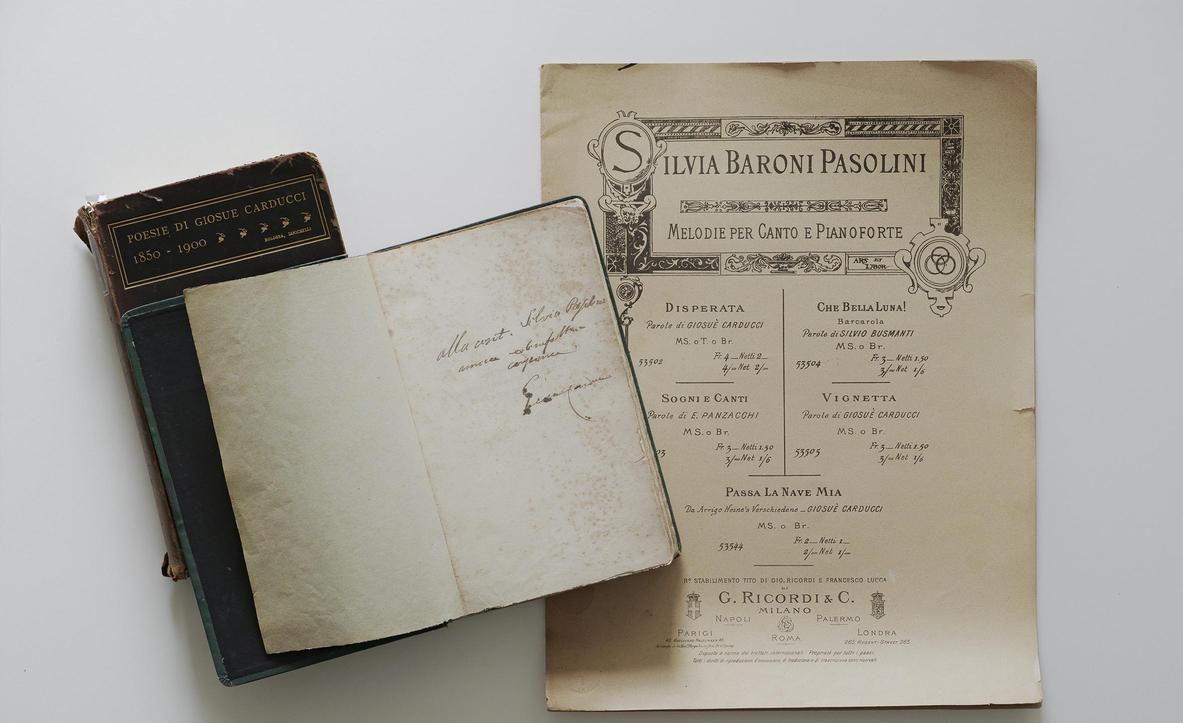 POESIE DI GIOSUE CARDUCCI
1850 - 1900
BOLOGNA, ZANICHELLI
alla cont. Silvia Pasolini
amica
SILVIA BARONI PASOLINI
MELODIE PER CANTO E PIANOFORTE
ARS ET LABOR
DISPERATA
Parole di GIOSUÈ CARDUCCI
MS. o T. o Br.
53502
Fr. 4 _ Netti 2 _
4/_ Net 2/_
CHE BELLA LUNA!
Barcarola
Parole di SILVIO BUSMANTI
MS. o Br.
53504
Fr. 3 _ Netti 1.50
3/_ Net 1/6
SOGNI E CANTI
Parole di E. PANZACCHI
MS. o Br.
03
Fr. 3 _ Netti 1.50
3/_ Net 1/6
VIGNETTA
Parole di GIOSUÈ CARDUCCI
MS. o Br.
53505
Fr. 3 _ Netti 1.50
3/_ Net 1/6
PASSA LA NAVE MIA
Da Arrigo Heine's Verschiedene _ GIOSUÈ CARDUCCI
MS. o Br.
53544
Fr. 2 _ Netti 1 _
2/_ Net 1/_
Rº STABILIMENTO TITO DI GIO. RICORDI E FRANCESCO LUCCA
DI
G. RICORDI & C.
MILANO
NAPOLI
PALERMO
PARIGI
ROMA
LONDRA
265, REGENT-STREET 265.
Deposto a norma dei trattati internazionali. Proprietà per tutti i paesi.
Tutti i diritti di riproduzione, d'esecuzione, di traduzione e di trascrizione sono riservati.